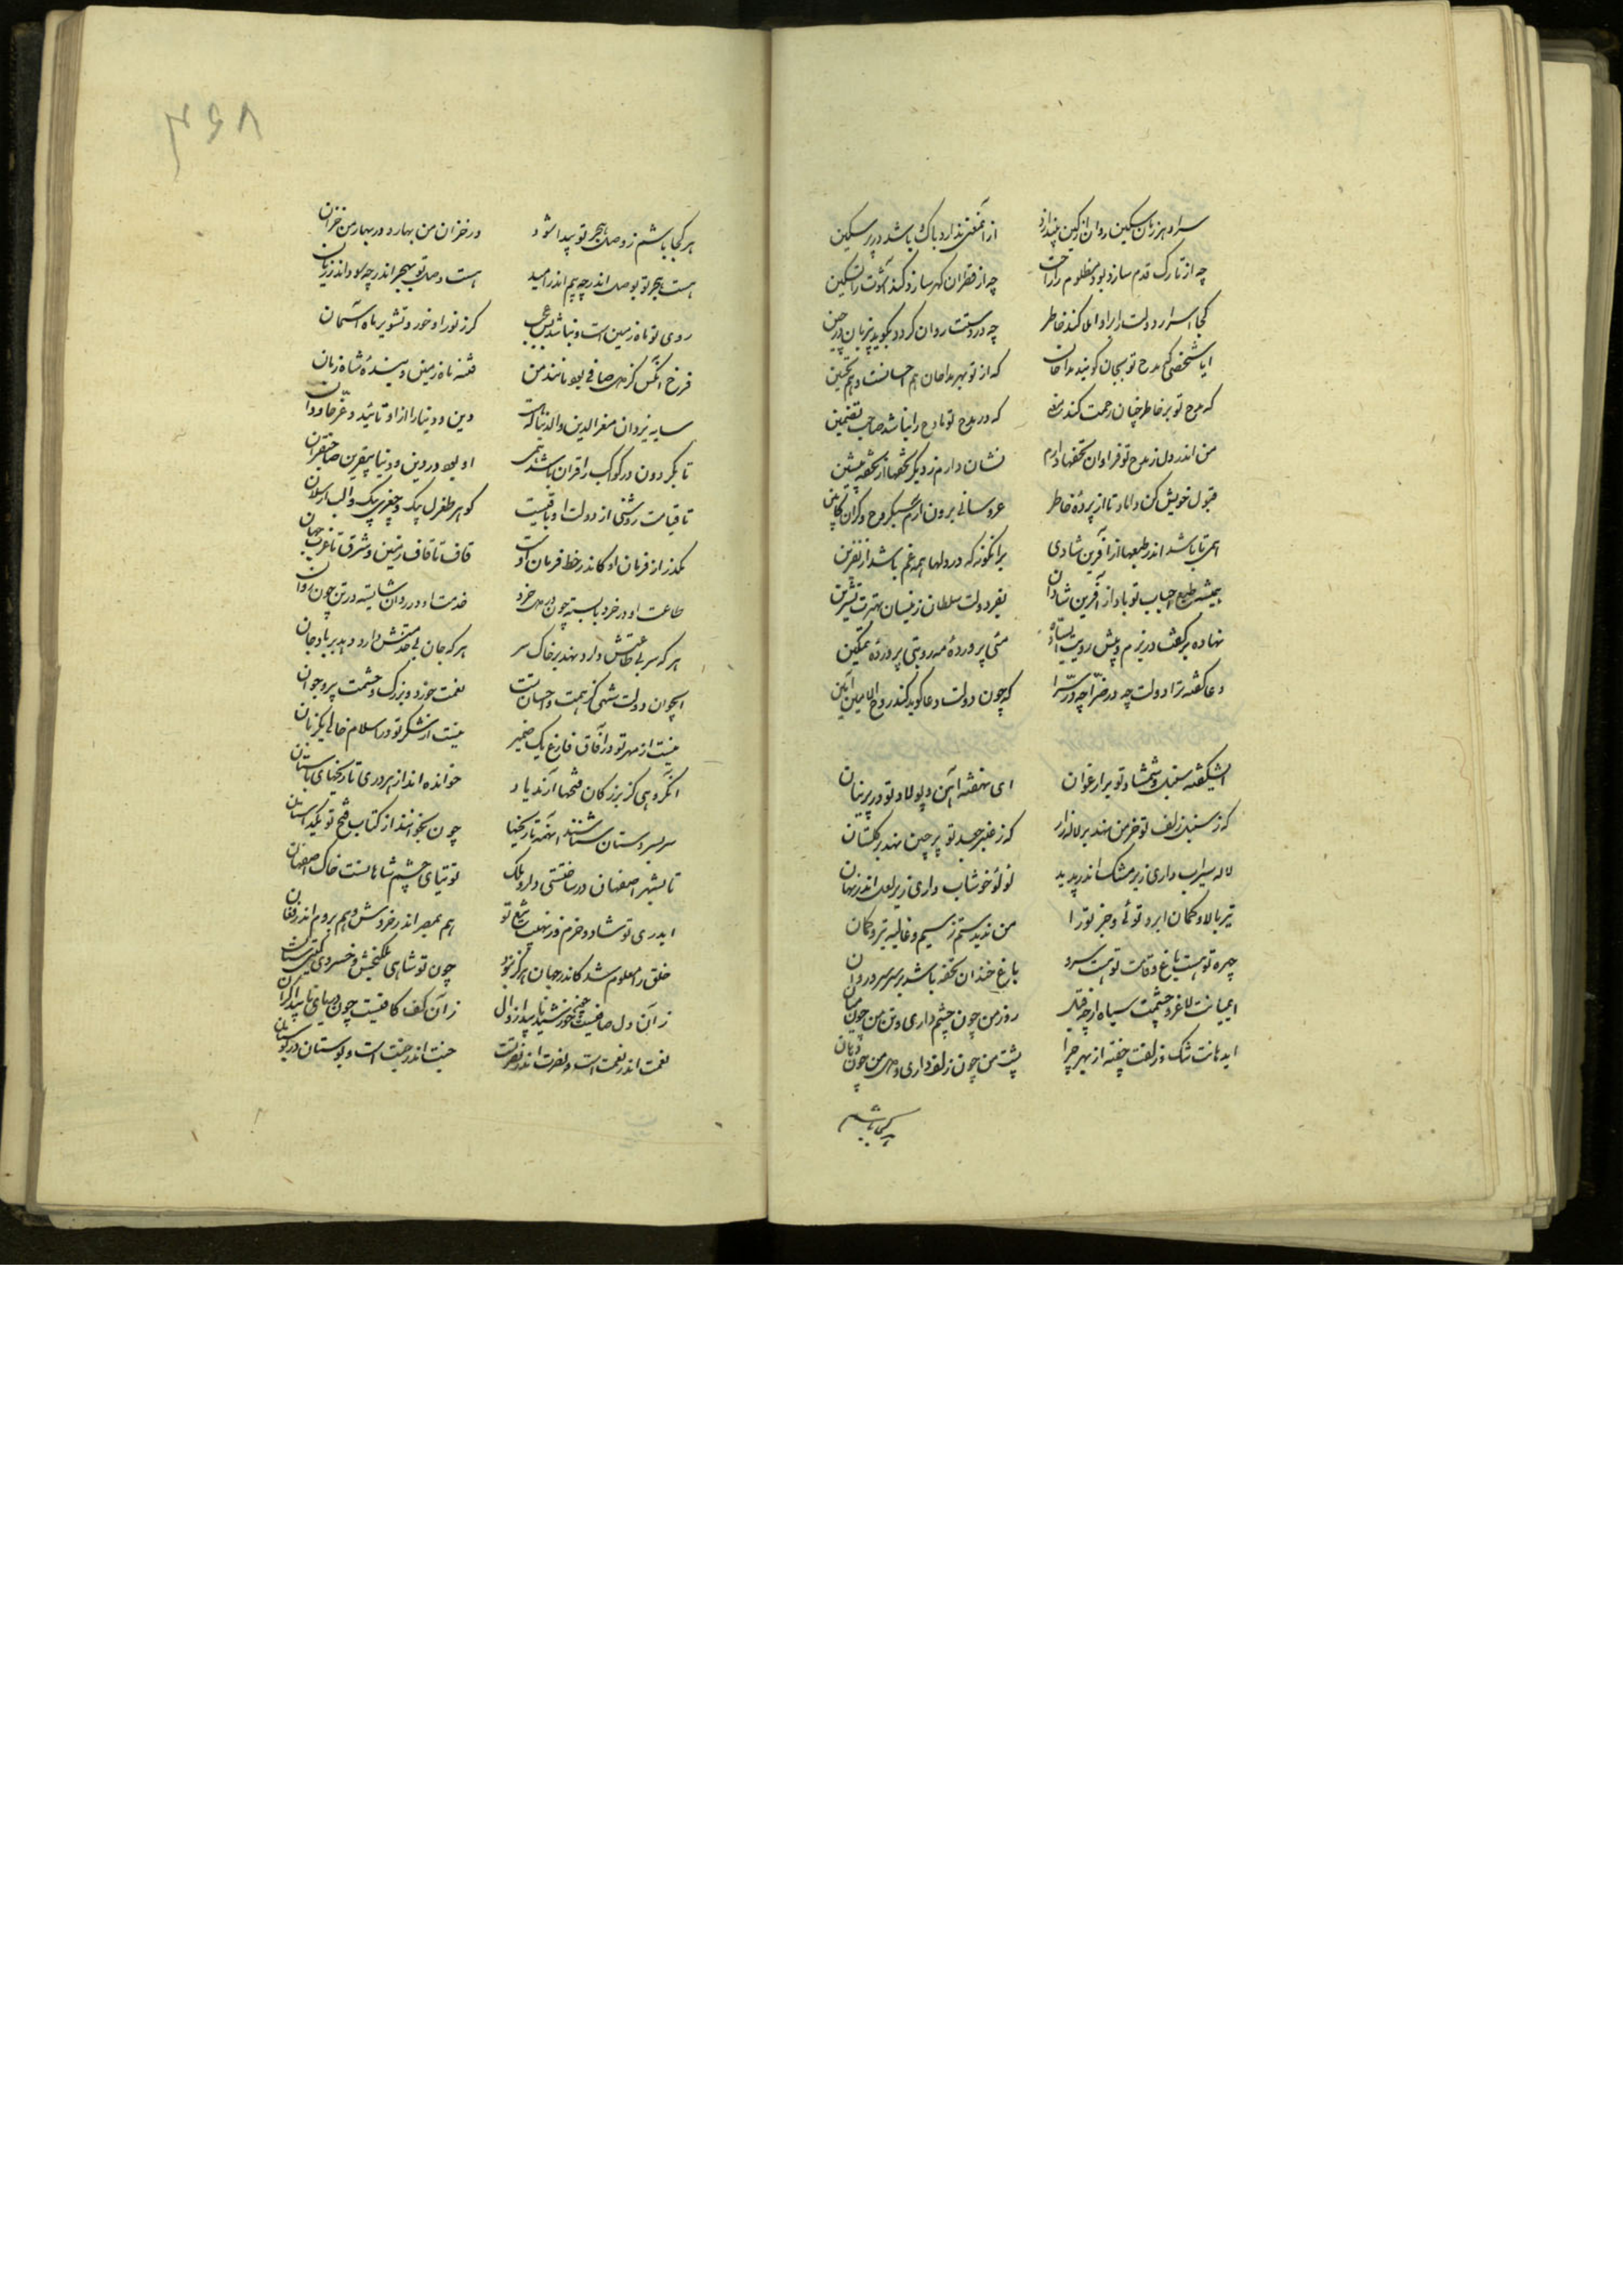 سراو هر زمان سکین روان از کین بیندازد از آنمعنی ندارد باک باشد در بر سکین
چه از تارک قدم سازد بود مظلوم را راحت چه از قطران گهر سازد کند آشوب را تسکین
کجا اسرار دولت از را و املا کند خاطر چه در دستت روان گردد بگوید بر زبان در حین
ایا شخصی که مدح تو بجان گویند مداحان که از تو بهر مداحان هم احسانست و هم تحسین
که مدح تو بر خاطر چنان رحمت کند که در مدح تو مادح را نباشد صاحب تضمین
من اندر دل ز مدح تو فراوان تحفها دارم نشان دارم ز دیگر تحفها از تحفه پیشین
قبول خویش کن دامادتا از پرده خاطر عروسانی برون آرم سبکروح و گران کابین
همی تا باشد اندر طبعها از آفرین شادی بر آنگونه که در دلها همه غم باشد از نفرین
همیشه طبع احباب تو باد از آفرین شادان بفر دولت سلطان ز نیسان بهترت تشرین
نهاده بر کفت در بزم و پیش رویت استاده مئی پرورده مه رو بتی پرورده تمکین
دعا گفته ترا دولت چه در ضرا چه در سرا که چون دولت دعا گوید کند روح الامین آمین
ای شکفته سنبل و شمشاد تو بر ارغوان ای نهفته آهن و پولاد تو در پرنیان
که ز سنبل زلف تو خرمن نهد بر لاله زار که ز عنبر جعد تو پرچین نهد بر گلستان
لاله سیراب داری زیر مشک اندر پدید لؤلؤ خوشاب داری زیر لعل اندر نهان
تیر بالا و کمان ابرو توئی و جز تو را من ندیدستم ز سیم و غالیه تیر و کمان
چهره تو هست باغ و قامت تو هست سرو باغ خندان تحفه باشد بر سر سرو روان
ای میانت لاغر و چشمت سیاه از چه قبل روز من چون چشم داری و تن من چون میان
ای دهانت تنگ و زلفت چفته از بهر چرا پشت من چون زلف داری و دل من چون دهان
هر کجا باشم
۳۶۸
هر کجا باشم ز وصل و هجر تو پیدا شود در خزان من بهار و در بهار من خزان
هست هجر تو بوصل اندر چه بیم اندر امید هست وصل تو بهجر اندر چه سود اندر زیان
روی تو ماه زمین است و نباشد بس عجب گر ز نور او خورد تشویر ماه آسمان
فرخ آنکس کز دل صافی بود مانند من فتنه ماه زمین و بنده شاه زمان
سایه یزدان معزالدین والدنیا که هست دین و دنیا را از او تائید و عز جاودان
تا بگردون در کواکب را قران باشد همی او بود در دین و دنیا بیقرین صاحبقران
تا قیامت روشنی از دولت او باقیست گوهر طغرل بیک و چغری بیک و الب ارسلان
مگذر از فرمان او کاندر خط فرمان اوست قاف تا قاف زمین و شرق تا غرب جهان
طاعت او در خرد بایسته چون در دل خرد خدمت او در روان شایسته در تن چون روان
هر که سر بی طاعتش دارد نهد بر خاک سر هر که جان بی خدمتش دارد دهد بر باد جان
ای جوان دولت شهی کز همت و احسان تست نعمت خورد و بزرگ و حشمت پیر و جوان
نیست از مهر تو در آفاق فارغ یک ضمیر نیست از شکر تو در اسلام خالی یکزبان
آن گروهی کز بزرگان فتحها آرند یاد خوانده اند از هر دری تاریخهای باستان
سر بسر دستان شناسند آنهمه تاریخها چون بخوانند از کتاب فتح تو یکداستان
تا بشهر اصفهان در ساختستی دار ملک توتیای چشم شاهانست خاک اصفهان
ایدری تو شاد و خرم وز نهیب تیغ تو هم بمصر اندر خروش و هم بروم اندر فغان
خلق را معلوم شد کاندر جهان هرگز نبود چون تو شاهی ملک بخش و خسروی گیتی ستان
زآن دل صافیست چون خورشید ناپیدا زوال زآن کف کافیست چون دریای ناپیدا کران
نعمت اندر نعمت است و نصرت اندر نصرتست جنت اندر جنت است و بوستان در بوستان